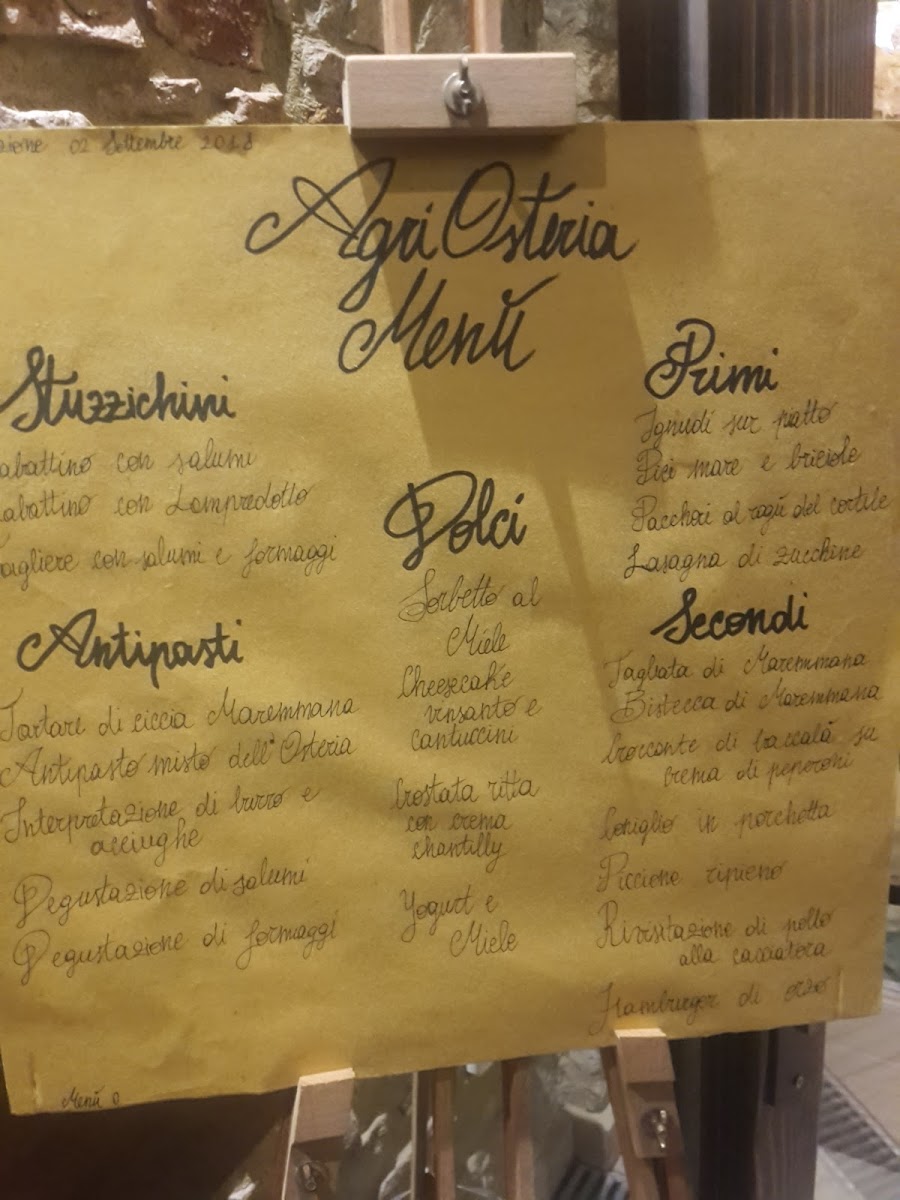 zione 02 Settembre 2018
Agri Osteria
Menù
Stuzzichini
abattino con salumi
abattino con Lampredotto
Tagliere con salumi e formaggi
Antipasti
Tartare di ciccia Maremmana
Antipasto misto dell'Osteria
Interpretazione di burro e
acciughe
Degustazione di salumi
Degustazione di formaggi
Dolci
Sorbetto al
Miele
Cheesecake
vinsanto e
cantuccini
Crostata ritta
con crema
chantilly
Yogurt e
Miele
Primi
Ignudi sur piatto
Pici mare e briciole
Paccheri al ragù del cortile
Lasagna di zucchine
Secondi
Tagliata di Maremmana
Bistecca di Maremmana
Croccante di baccalà su
crema di peperoni
Coniglio in porchetta
Piccione ripieno
Rivisitazione di pollo
alla cacciatora
Hamburger di orzo
Menù